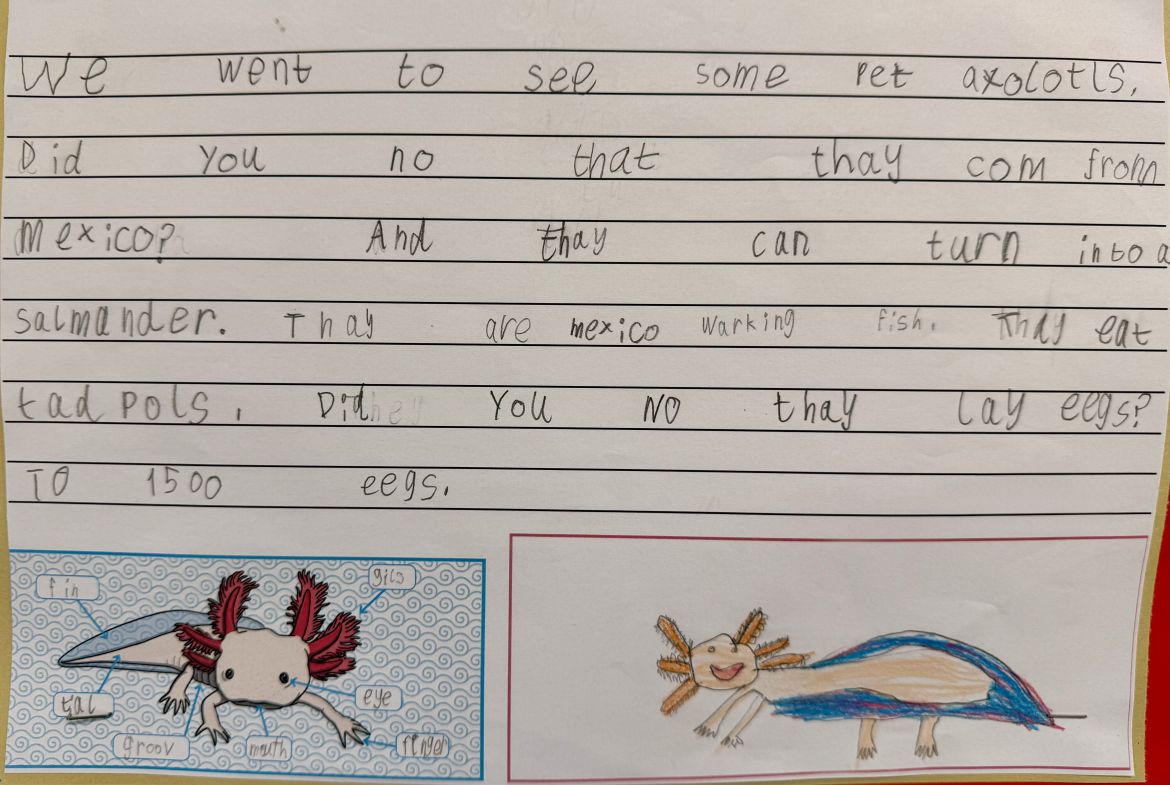 We went to see some pet axolotls.
Did you no that thay com from
mexico? And thay can turn into a
salmander. Thay are mexico warking fish. Thay eat
tad pols. Did you no thay lay eegs?
To 1500 eegs.
fin
gils
tal
eye
groov
mouth
finger